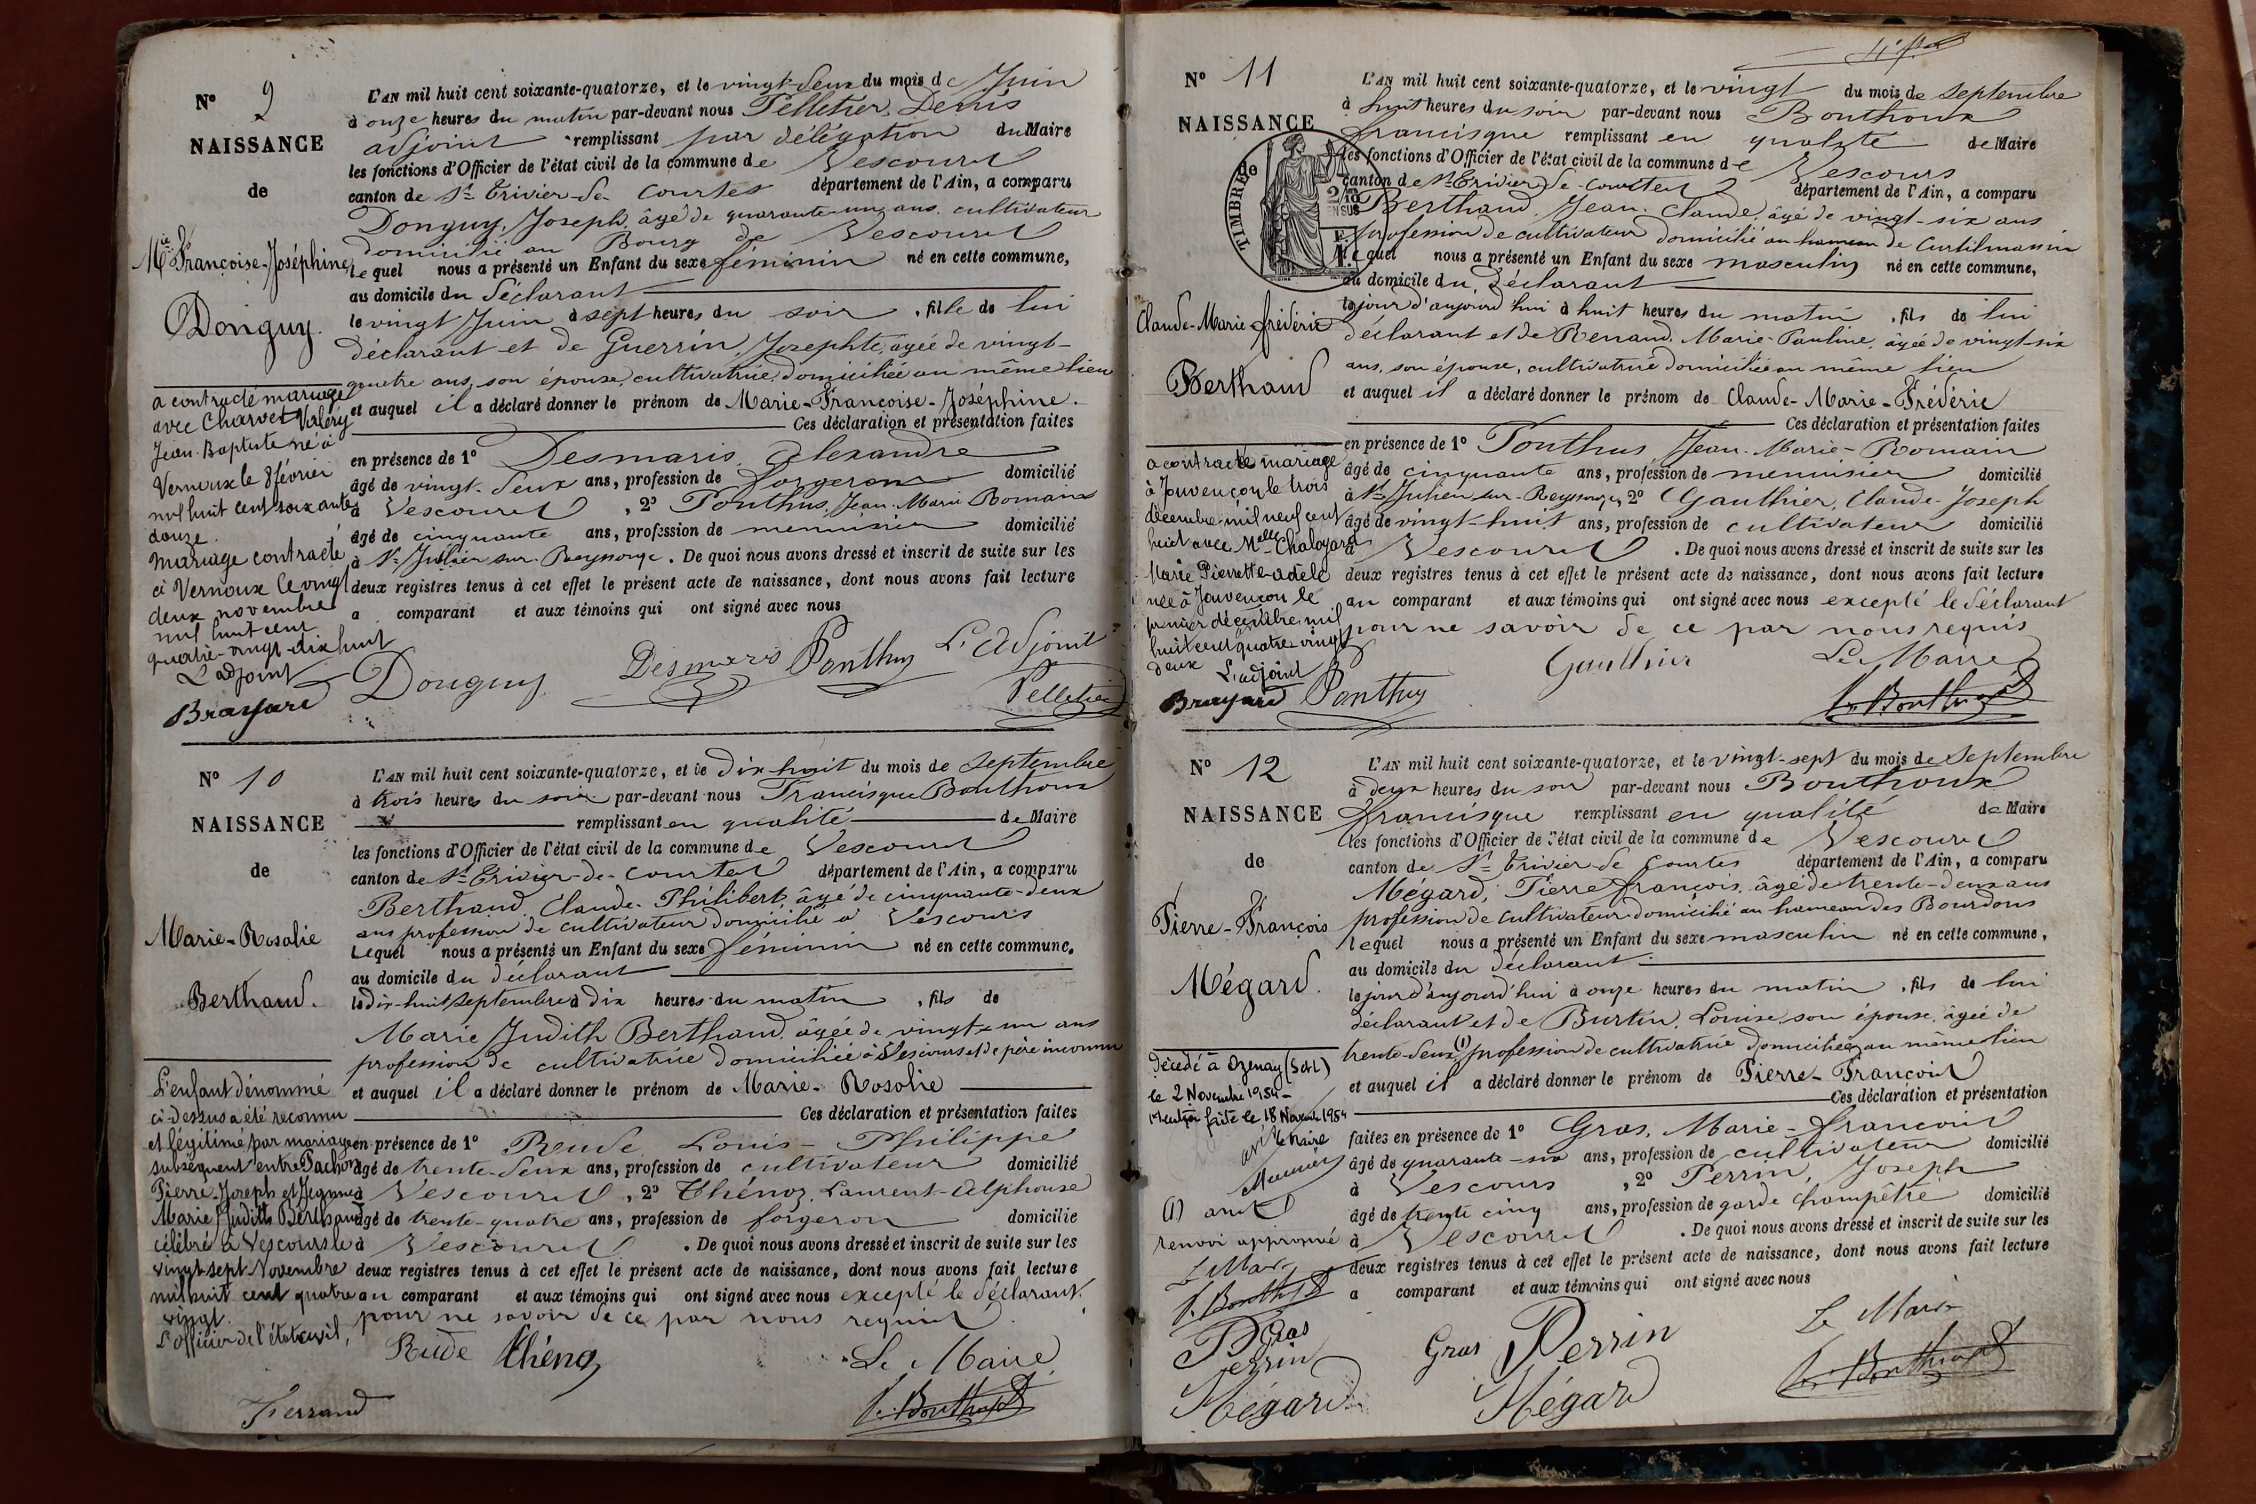 N° 9
NAISSANCE
de
Mie Françoise-Joséphine
Donguy.
a contracté mariage
avec Charvet Valéry
Jean-Baptiste né à
Vernoux le 8 février
mil huit cent soixante
douze.
Mariage contracté
à Vernoux le vingt
deux novembre
mil huit cent
quatre-vingt-dix huit
L'adjoint
Brayard
L'AN mil huit cent soixante-quatorze, et le vingt-deux du mois de Juin
à onze heures du matin par-devant nous Pelletier, Denis
adjoint remplissant par délégation du Maire
les fonctions d'Officier de l'état civil de la commune de Vescours
canton de St Trivier-de-Courtes département de l'Ain, a comparu
Donguy, Joseph, âgé de quarante-un ans, cultivateur
domicilié au Bourg de Vescours
Lequel nous a présenté un Enfant du sexe féminin né en cette commune,
au domicile du déclarant
le vingt Juin à sept heures du soir, fille de lui
déclarant et de Guerrin, Josephte, âgée de vingt-
quatre ans, son épouse, cultivatrice, domiciliée au même lieu
et auquel il a déclaré donner le prénom de Marie-Françoise-Joséphine.
Ces déclaration et présentation faites
en présence de 1° Desmaris, Alexandre
âgé de vingt-deux ans, profession de forgeron domicilié
à Vescours, 2° Ponthus, Jean-Marie Romain
âgé de cinquante ans, profession de menuisier domicilié
à St Julien sur Reyssouze. De quoi nous avons dressé et inscrit de suite sur les
deux registres tenus à cet effet le présent acte de naissance, dont nous avons fait lecture
a comparant et aux témoins qui ont signé avec nous
Donguy Desmaris Ponthus L'Adjoint
Pelletier
N° 10
NAISSANCE
de
Marie-Rosalie
Berthaud.
L'enfant dénommé
ci-dessus a été reconnu
et légitimé par mariage
subséquent entre Pachon
Pierre Joseph et Jeanne
Marie Judith Berthaud
célébré à Vescours le
vingt-sept Novembre
mil huit cent quatre
vingt.
L'officier de l'état civil,
Ferrand
L'AN mil huit cent soixante-quatorze, et le dix-huit du mois de Septembre
à trois heures du soir par-devant nous Francisque Bouthoux
remplissant en qualité de Maire
les fonctions d'Officier de l'état civil de la commune de Vescours
canton de St Trivier-de-Courtes département de l'Ain, a comparu
Berthaud, Claude-Philibert, âgé de cinquante-deux
ans profession de cultivateur domicilié à Vescours
Lequel nous a présenté un Enfant du sexe féminin né en cette commune.
au domicile du déclarant
le dix-huit septembre à dix heures du matin, fils de
Marie Judith Berthaud, âgée de vingt-un ans
profession de cultivatrice domiciliée à Vescours et de père inconnu
et auquel il a déclaré donner le prénom de Marie-Rosalie
Ces déclaration et présentation faites
en présence de 1° Reude Louis-Philippe
âgé de trente-deux ans, profession de cultivateur domicilié
à Vescours, 2° Thénoz, Laurent-Alphonse
âgé de trente-quatre ans, profession de forgeron domicilié
à Vescours. De quoi nous avons dressé et inscrit de suite sur les
deux registres tenus à cet effet le présent acte de naissance, dont nous avons fait lecture
au comparant et aux témoins qui ont signé avec nous excepté le déclarant
pour ne savoir de ce par nous requis.
Reude Thénoz Le Maire
F. Bouthoux
N° 11
NAISSANCE
de
TIMBRE
Claude-Marie-Frédéric
Berthaud
a contracté mariage
à Jouvençon le trois
décembre mil neuf cent
huit avec Melle Chaloyard
Marie Pierrette Adèle
née à Jouvençon le
premier décembre mil
huit cent quatre vingt
deux
L'adjoint
Brayard
L'AN mil huit cent soixante-quatorze, et le vingt du mois de Septembre
à huit heures du soir par-devant nous Bouthoux
francisque remplissant en qualité de Maire
les fonctions d'Officier de l'état civil de la commune de Vescours
canton de St Trivier-de-Courtes département de l'Ain, a comparu
Berthaud, Jean-Claude, âgé de vingt-six ans
profession de cultivateur domicilié au hameau de Curtilmassin
Lequel nous a présenté un Enfant du sexe masculin né en cette commune,
au domicile du déclarant
le jour d'aujourd'hui à huit heures du matin, fils de lui
déclarant et de Renaud, Marie-Pauline, âgée de vingt-six
ans, son épouse, cultivatrice domiciliée au même lieu
et auquel il a déclaré donner le prénom de Claude-Marie-Frédéric
Ces déclaration et présentation faites
en présence de 1° Ponthus, Jean-Marie-Romain
âgé de cinquante ans, profession de menuisier domicilié
à St Julien sur-Reyssouze, 2° Gauthier, Claude-Joseph
âgé de vingt-huit ans, profession de cultivateur domicilié
à Vescours. De quoi nous avons dressé et inscrit de suite sur les
deux registres tenus à cet effet le présent acte de naissance, dont nous avons fait lecture
au comparant et aux témoins qui ont signé avec nous excepté le déclarant
pour ne savoir de ce par nous requis
Ponthus Gauthier Le Maire
F. Bouthoux
N° 12
NAISSANCE
de
Pierre-François
Mégard.
décédé à Ozenay (S et L)
le 2 Novembre 1954-
Mention faite le 18 Novembre 1954
Le Maire
(1) ans
renvoi approuvé
Le Maire
F. Bouthoux
Gras
Perrin
Mégard
L'AN mil huit cent soixante-quatorze, et le vingt-sept du mois de Septembre
à deux heures du soir par-devant nous Bouthoux
francisque remplissant en qualité de Maire
les fonctions d'Officier de l'état civil de la commune de Vescours
canton de St Trivier-de-Courtes département de l'Ain, a comparu
Mégard, Pierre françois, âgé de trente-deux ans
profession de cultivateur domicilié au hameau des Bourdons
lequel nous a présenté un Enfant du sexe masculin né en cette commune,
au domicile du déclarant
le jour d'aujourd'hui à onze heures du matin, fils de lui
déclarant et de Burtin, Louise, son épouse, âgée de
trente-deux (1) profession de cultivatrice domiciliée au même lieu
et auquel il a déclaré donner le prénom de Pierre-François
Ces déclaration et présentation
faites en présence de 1° Gras, Marie-François
âgé de quarante-six ans, profession de cultivateur domicilié
à Vescours, 2° Perrin, Joseph
âgé de trente cinq ans, profession de garde champêtre domicilié
à Vescours. De quoi nous avons dressé et inscrit de suite sur les
deux registres tenus à cet effet le présent acte de naissance, dont nous avons fait lecture
a comparant et aux témoins qui ont signé avec nous
Gras Perrin Le Maire
Mégard F. Bouthoux